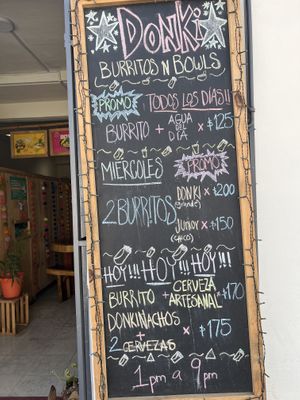 DONKi
BURRITOS N BOWLS
PROMO
TODOS LOS DIAS!!
BURRITO + AGUA DEL DIA x $125
MIERCOLES
PROMO
2 BURRITOS
DONKI (grande) x $200
JUNIOR (chico) x $150
HOY!!! HOY!!! HOY!!!
BURRITO + CERVEZA ARTESANAL x $170
DONKINACHOS + 2 CERVEZAS x $175
1pm a 9pm